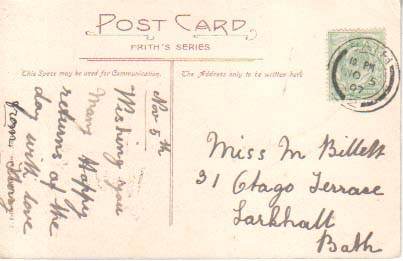 POST CARD
FRITH'S SERIES
This Space may be used for Communication.
The Address only to be written here
Nov 5th
Wishing you
Many Happy
returns of the
day with love
from
Miss M Billett
31 Otago Terrace
Larkhall
Bath